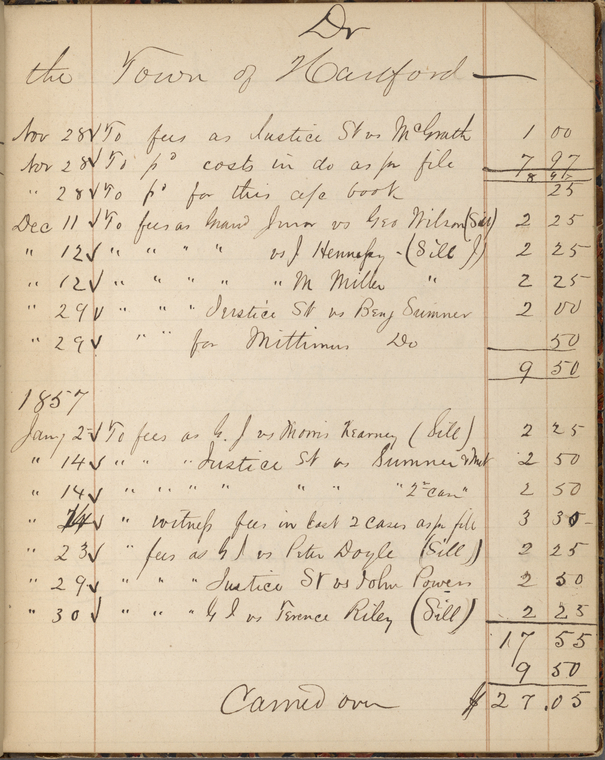 Dr
the Town of Hartford —
Nov 28 √ To fees as Justice St vs McGrath 1 00
Nov 28 √ To pd costs in do as pr file 7 97
8 97
" 28 √ To pd for this a/c book 25
Dec 11 √ To fees as Grand Juror vs Geo Wilson (Sill) 2 25
" 12 √ " " " " vs J Hennessy - (Sill J) 2 25
" 12 √ " " " " " M Miller " 2 25
" 29 √ " " " Justice St vs Benj Sumner 2 00
" 29 √ " " " for Mittimus Do 50
9 50
1857
Jany 2 √ To fees as G. J vs Morris Kearney (Sill) 2 25
" 14 √ " " " Justice St vs Sumner & Mit 2 50
" 14 √ " " " " " " "2d case" 2 50
" 14 √ " witness fees in last 2 cases as pr file 3 30
" 23 √ " fees as G J vs Peter Doyle (Sill J) 2 25
" 29 √ " " " Justice St vs John Powers 2 50
" 30 √ " " " G J vs Terence Riley (Sill) 2 25
17 55
9 50
Carried over $ 27.05